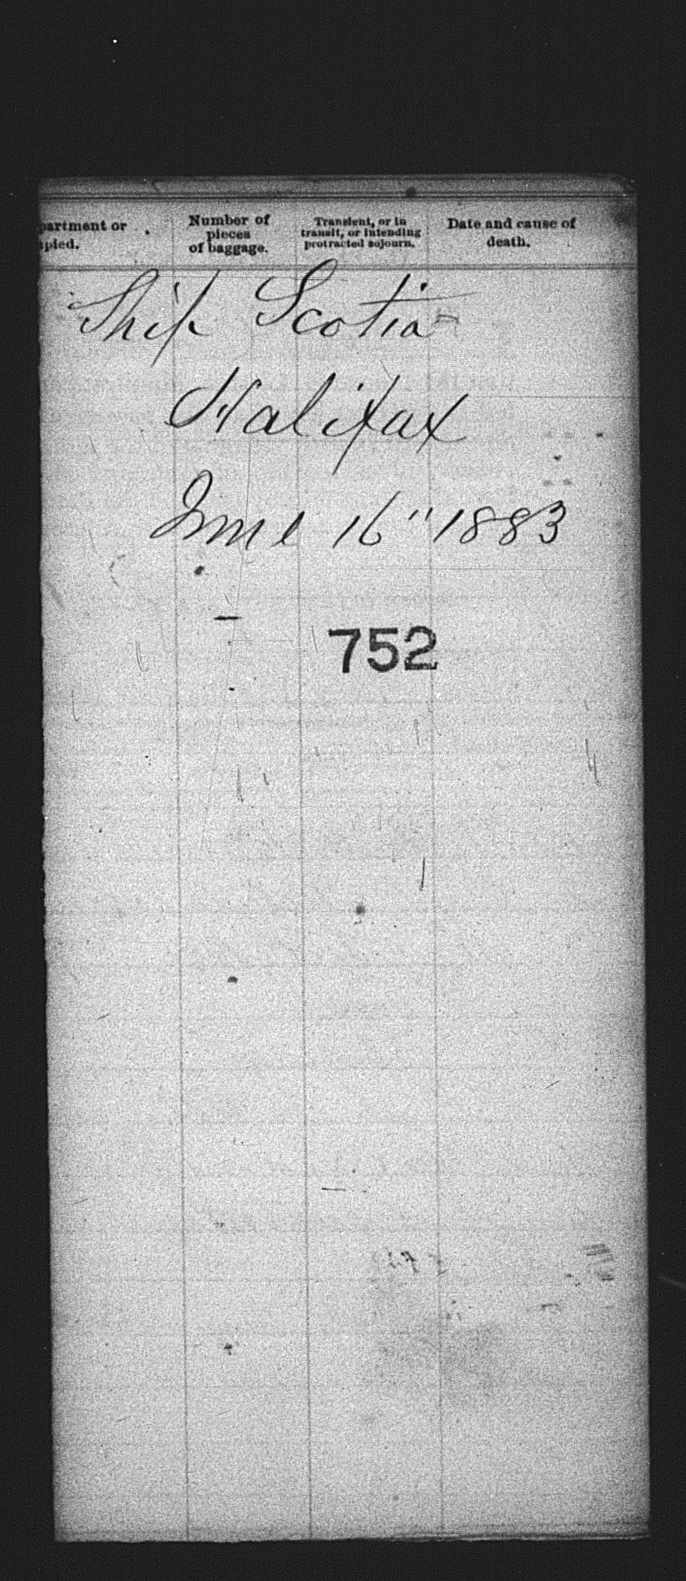 partment or
pied.
Number of
pieces
of baggage.
Transient, or in
transit, or intending
protracted sojourn.
Date and cause of
death.
Ship Scotia
Halifax
June 16" 1883
752